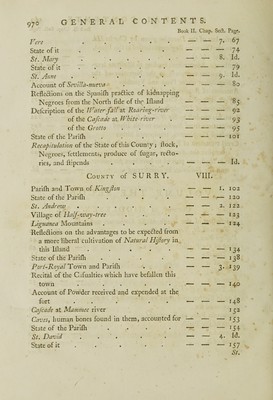 970 GENERAL CONTENTS.
Book II. Chap. Sect. Page.
Vere . . . . . — — 7. 67
State of it . . . . . — — — 74
St. Mary . . . . . — — 8. Id.
State of it . . . . . — — — 79
St. Anne . . . . . — — 9. Id.
Account of Sevilla-nueva . . . . — — — 80
Reflections on the Spanish practice of kidnapping
Negroes from the North side of the Island — — — 85
Description of the Water-fall at Roaring-river — — — 92
of the Cascade at White-river — — — 93
of the Grotto . . . — — — 95
State of the Parish . . . . — — — 101
Recapitulation of the State of this County; stock,
Negroes, settlements, produce of sugar, recto-
ries, and stipends . . . — — — Id.
COUNTY of SURRY. VIII.
Parish and Town of Kingston . . . — — 1. 102
State of the Parish . . . . — — — 120
St. Andrew . . . . . — — 2. 122
Village of Half-way-tree . . . — — — 123
Liguanea Mountains . . . . — — — 124
Reflections on the advantages to be expected from
a more liberal cultivation of Natural History in
this Island . . . . — — — 134
State of the Parish . . . . — — — 138
Port-Royal Town and Parish . . . — — 3. 139
Recital of the Casualties which have befallen this
town . . . . . — — — 140
Account of Powder received and expended at the
fort . . . . . — — — 148
Cascade at Mammee river . . . 152
Caves, human bones found in them, accounted for — — — 153
State of the Parish . . . . — — — 154
St. David . . . . . — — 4. Id.
State of it . . . . . — — — 157
St.